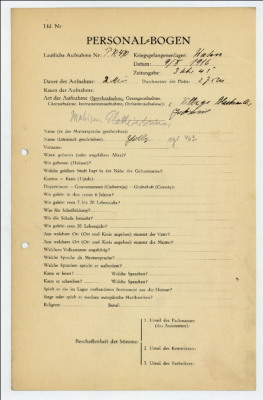 Lfd. Nr
PERSONAL-BOGEN
Lautliche Aufnahme Nr.: P.K. Kriegsgefangenenlager:
Datum: 9/X 1916
Zeitangabe: 3 Uhr 45
Dauer der Aufnahme: 2 Min Durchmesser der Platte: 27 cm
Raum der Aufnahme:
Art der Aufnahme (Sprechaufnahme, Gesangsaufnahme,
Choraufnahme, Instrumentenaufnahme, Orchesteraufnahme):
Name (in der Muttersprache geschrieben):
Name (lateinisch geschrieben):
Vorname:
Wann geboren (oder ungefähres Alter)?
Wo geboren (Heimat)?
Welche größere Stadt liegt in der Nähe des Geburtsortes?
Kanton — Kreis (Ujedz):
Departement — Gouvernement (Gubernija) — Grafschaft (County):
Wo gelebt in den ersten 6 Jahren?
Wo gelebt vom 7. bis 20. Lebensjahr?
Was für Schulbildung?
Wo die Schule besucht?
Wo gelebt vom 20. Lebensjahr?
Aus welchem Ort (Ort und Kreis angeben) stammt der Vater?
Aus welchem Ort (Ort und Kreis angeben) stammt die Mutter?
Welchem Volksstamm angehörig?
Welche Sprache als Muttersprache?
Welche Sprachen spricht er außerdem?
Kann er lesen? Welche Sprachen?
Kann er schreiben? Welche Sprachen?
Spielt er ein im Lager vorhandenes Instrument aus der Heimat?
Singt oder spielt er modern europäische Musikweisen?
Religion: Beruf:
Beschaffenheit der Stimme:
1. Urteil des Fachmanns
(des Assistenten):
2. Urteil des Kommissars:
3. Urteil des